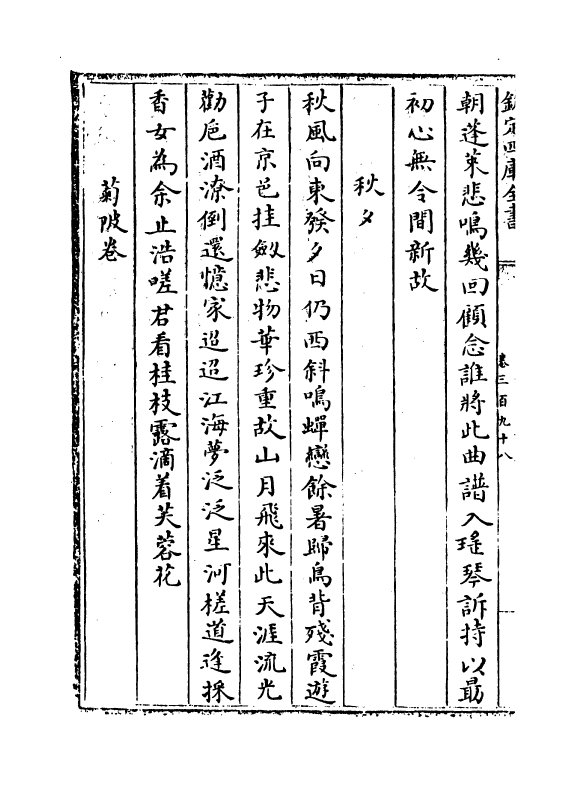 欽定四庫全書
卷三百九十八
朝蓬萊悲鳴幾回顧念誰將此曲譜入瑤琴訴持以勗
初心無令間新故
秋夕
秋風向東發夕日仍西斜鳴蟬戀餘暑歸鳥背殘霞遊
子在京邑挂劔悲物華珍重故山月飛來此天涯流光
勸巵酒潦倒還憶家迢迢江海夢泛泛星河槎道逢採
香女為余止浩嗟君看桂枝露滴着芙蓉花
菊陂卷